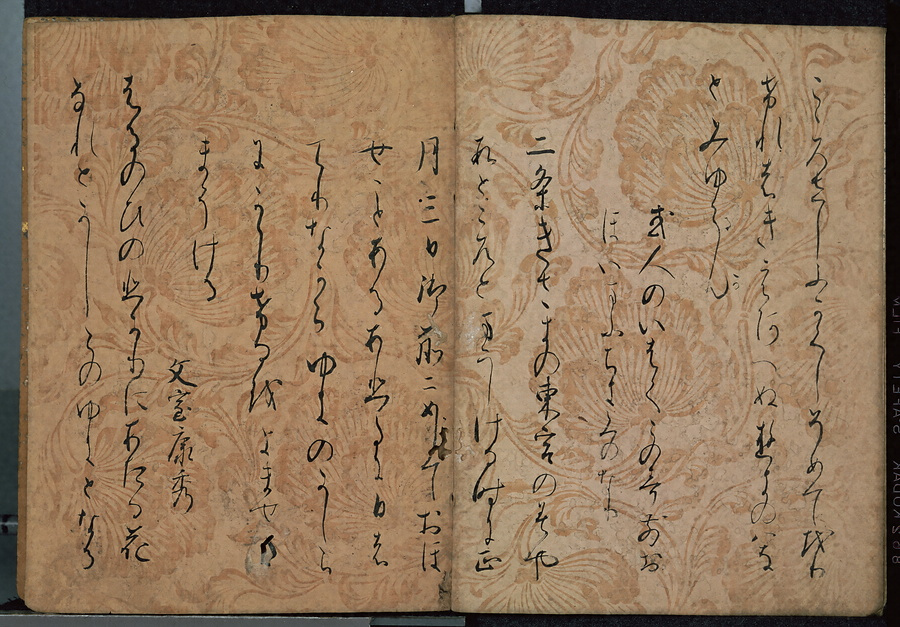 こゝろさしふかくしそめてをり
けれはきえあへぬ雪の花
とみゆらん
或人のいはくこの哥前お
ほいまうちきみのなり
二条きさきの東宮のみや
すところとまうしける時に正
月三日御前にめしておほ
せことあるあひたに日は
てりなからゆきのかしら
にふりかゝりけるをよませ
まうける
文室康秀
はるのひのひかりにあたる花
なれとかしらのゆきとなる